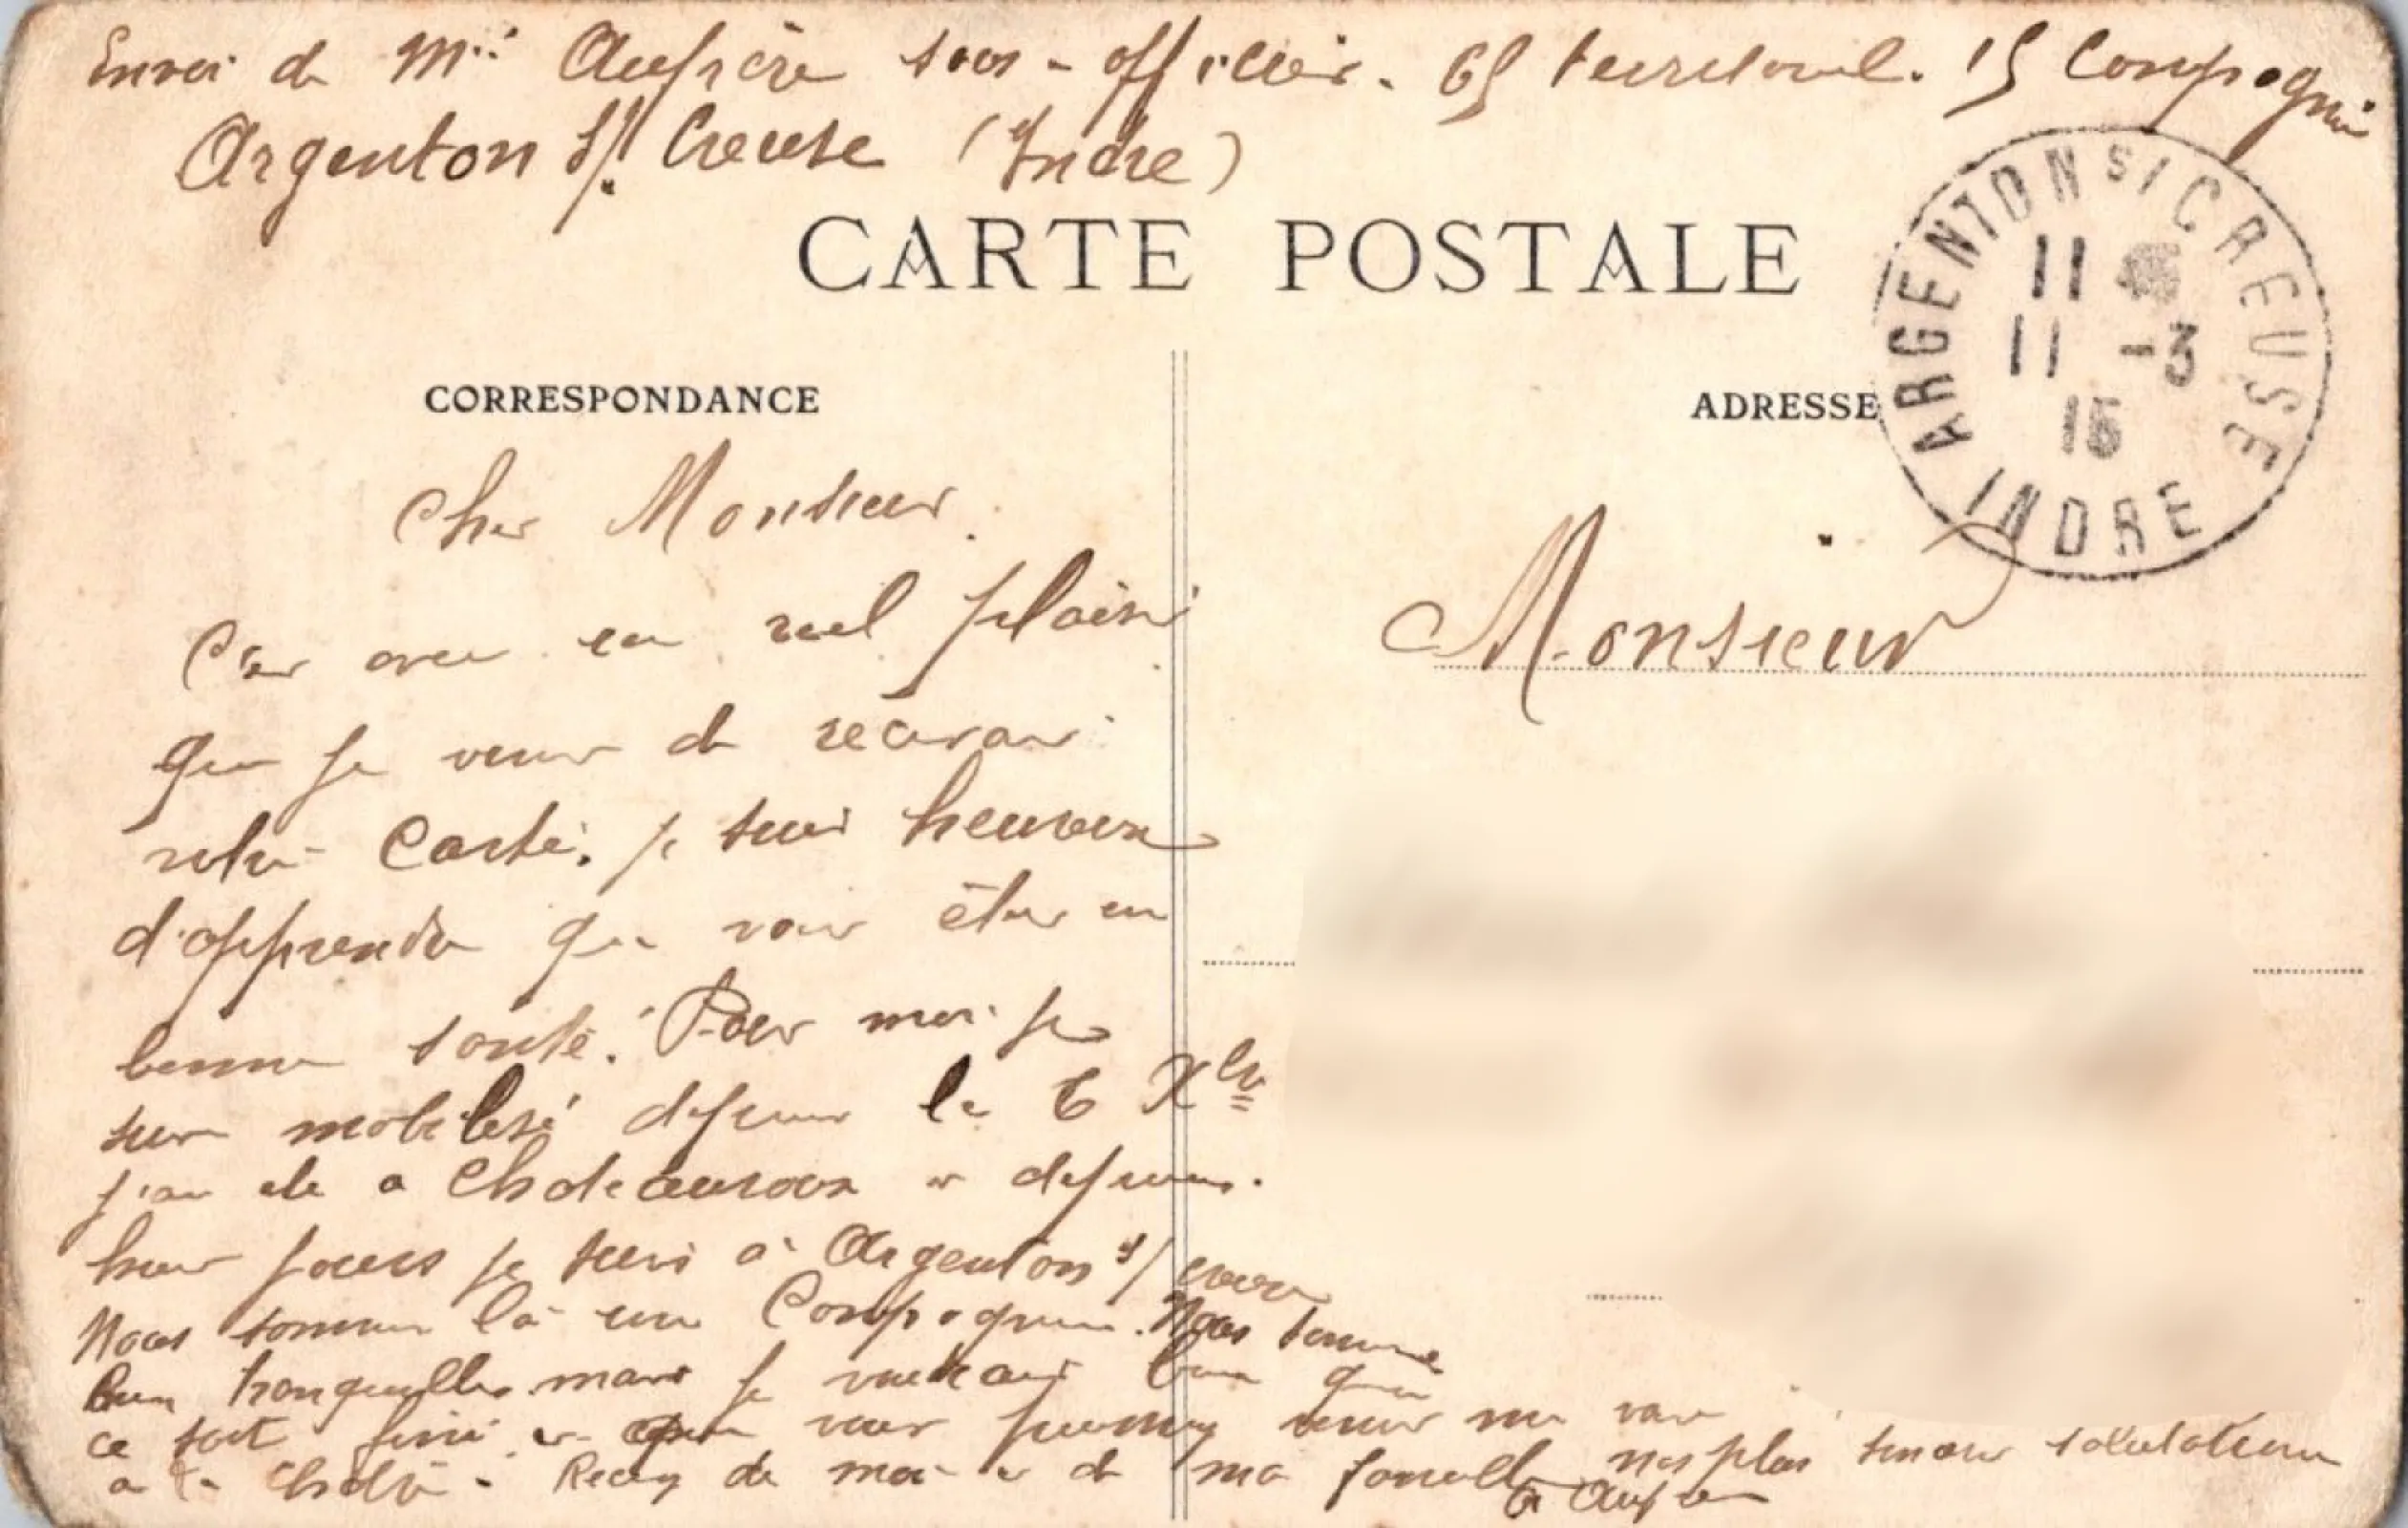 Envoi de Mr Aupière sous-officier. 65 territorial. 15 Compagnie
Argenton s/ Creuse (Indre)
CARTE POSTALE
ARGENTON S/ CREUSE
11
11 -3
15
INDRE
CORRESPONDANCE
ADRESSE
Cher Monsieur.
Monsieur
C'est avec un réel plaisir
que je viens de recevoir
votre Carte. je suis heureux
d'apprendre que vous êtes en
bonne santé. Pour moi je
suis mobilisé depuis le 6 Xbre
j'ai été a Chateauroux et depuis
huit jours je suis à Argenton s/ creuse
Nous sommes là une Compagnie. Nous sommes
bien tranquilles mais je voudrais bien que
ce soit fini et que vous puissiez venir me voir
a la Recevez de moi et de ma famille nos plus sincères salutations